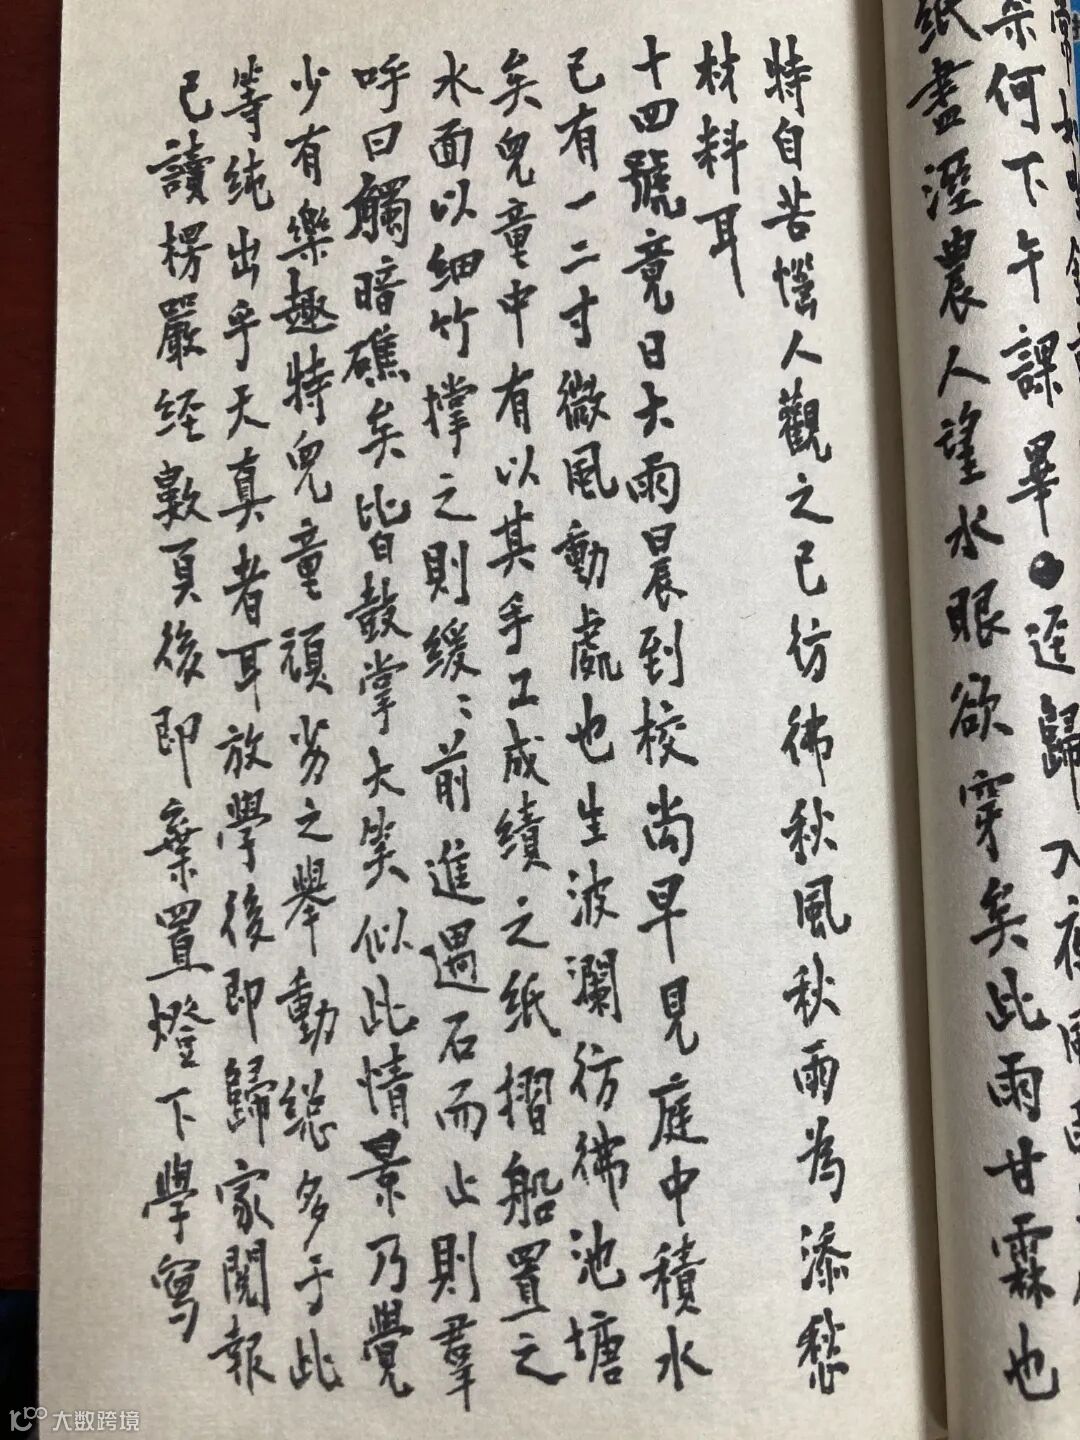 奈何下午課畢迳歸入夜風雨
紙盡溼農人望水眼欲穿矣此雨甘霖也
特自苦惱人觀之已彷彿秋風秋雨為添愁
材料耳
十四號竟日大雨晨到校尚早見庭中積水
已有一二寸微風動處也生波瀾彷彿池塘
矣兒童中有以其手工成績之紙摺船置之
水面以細竹撑之則緩〻前進遇石而止則羣
呼曰觸暗礁矣皆鼓掌大笑似此情景乃覺
少有樂趣特兒童頑劣之舉動縂多于此
等純出乎天真者耳放學後即歸家閱報
已讀楞嚴经數頁後即棄置燈下學寫
大数跨境